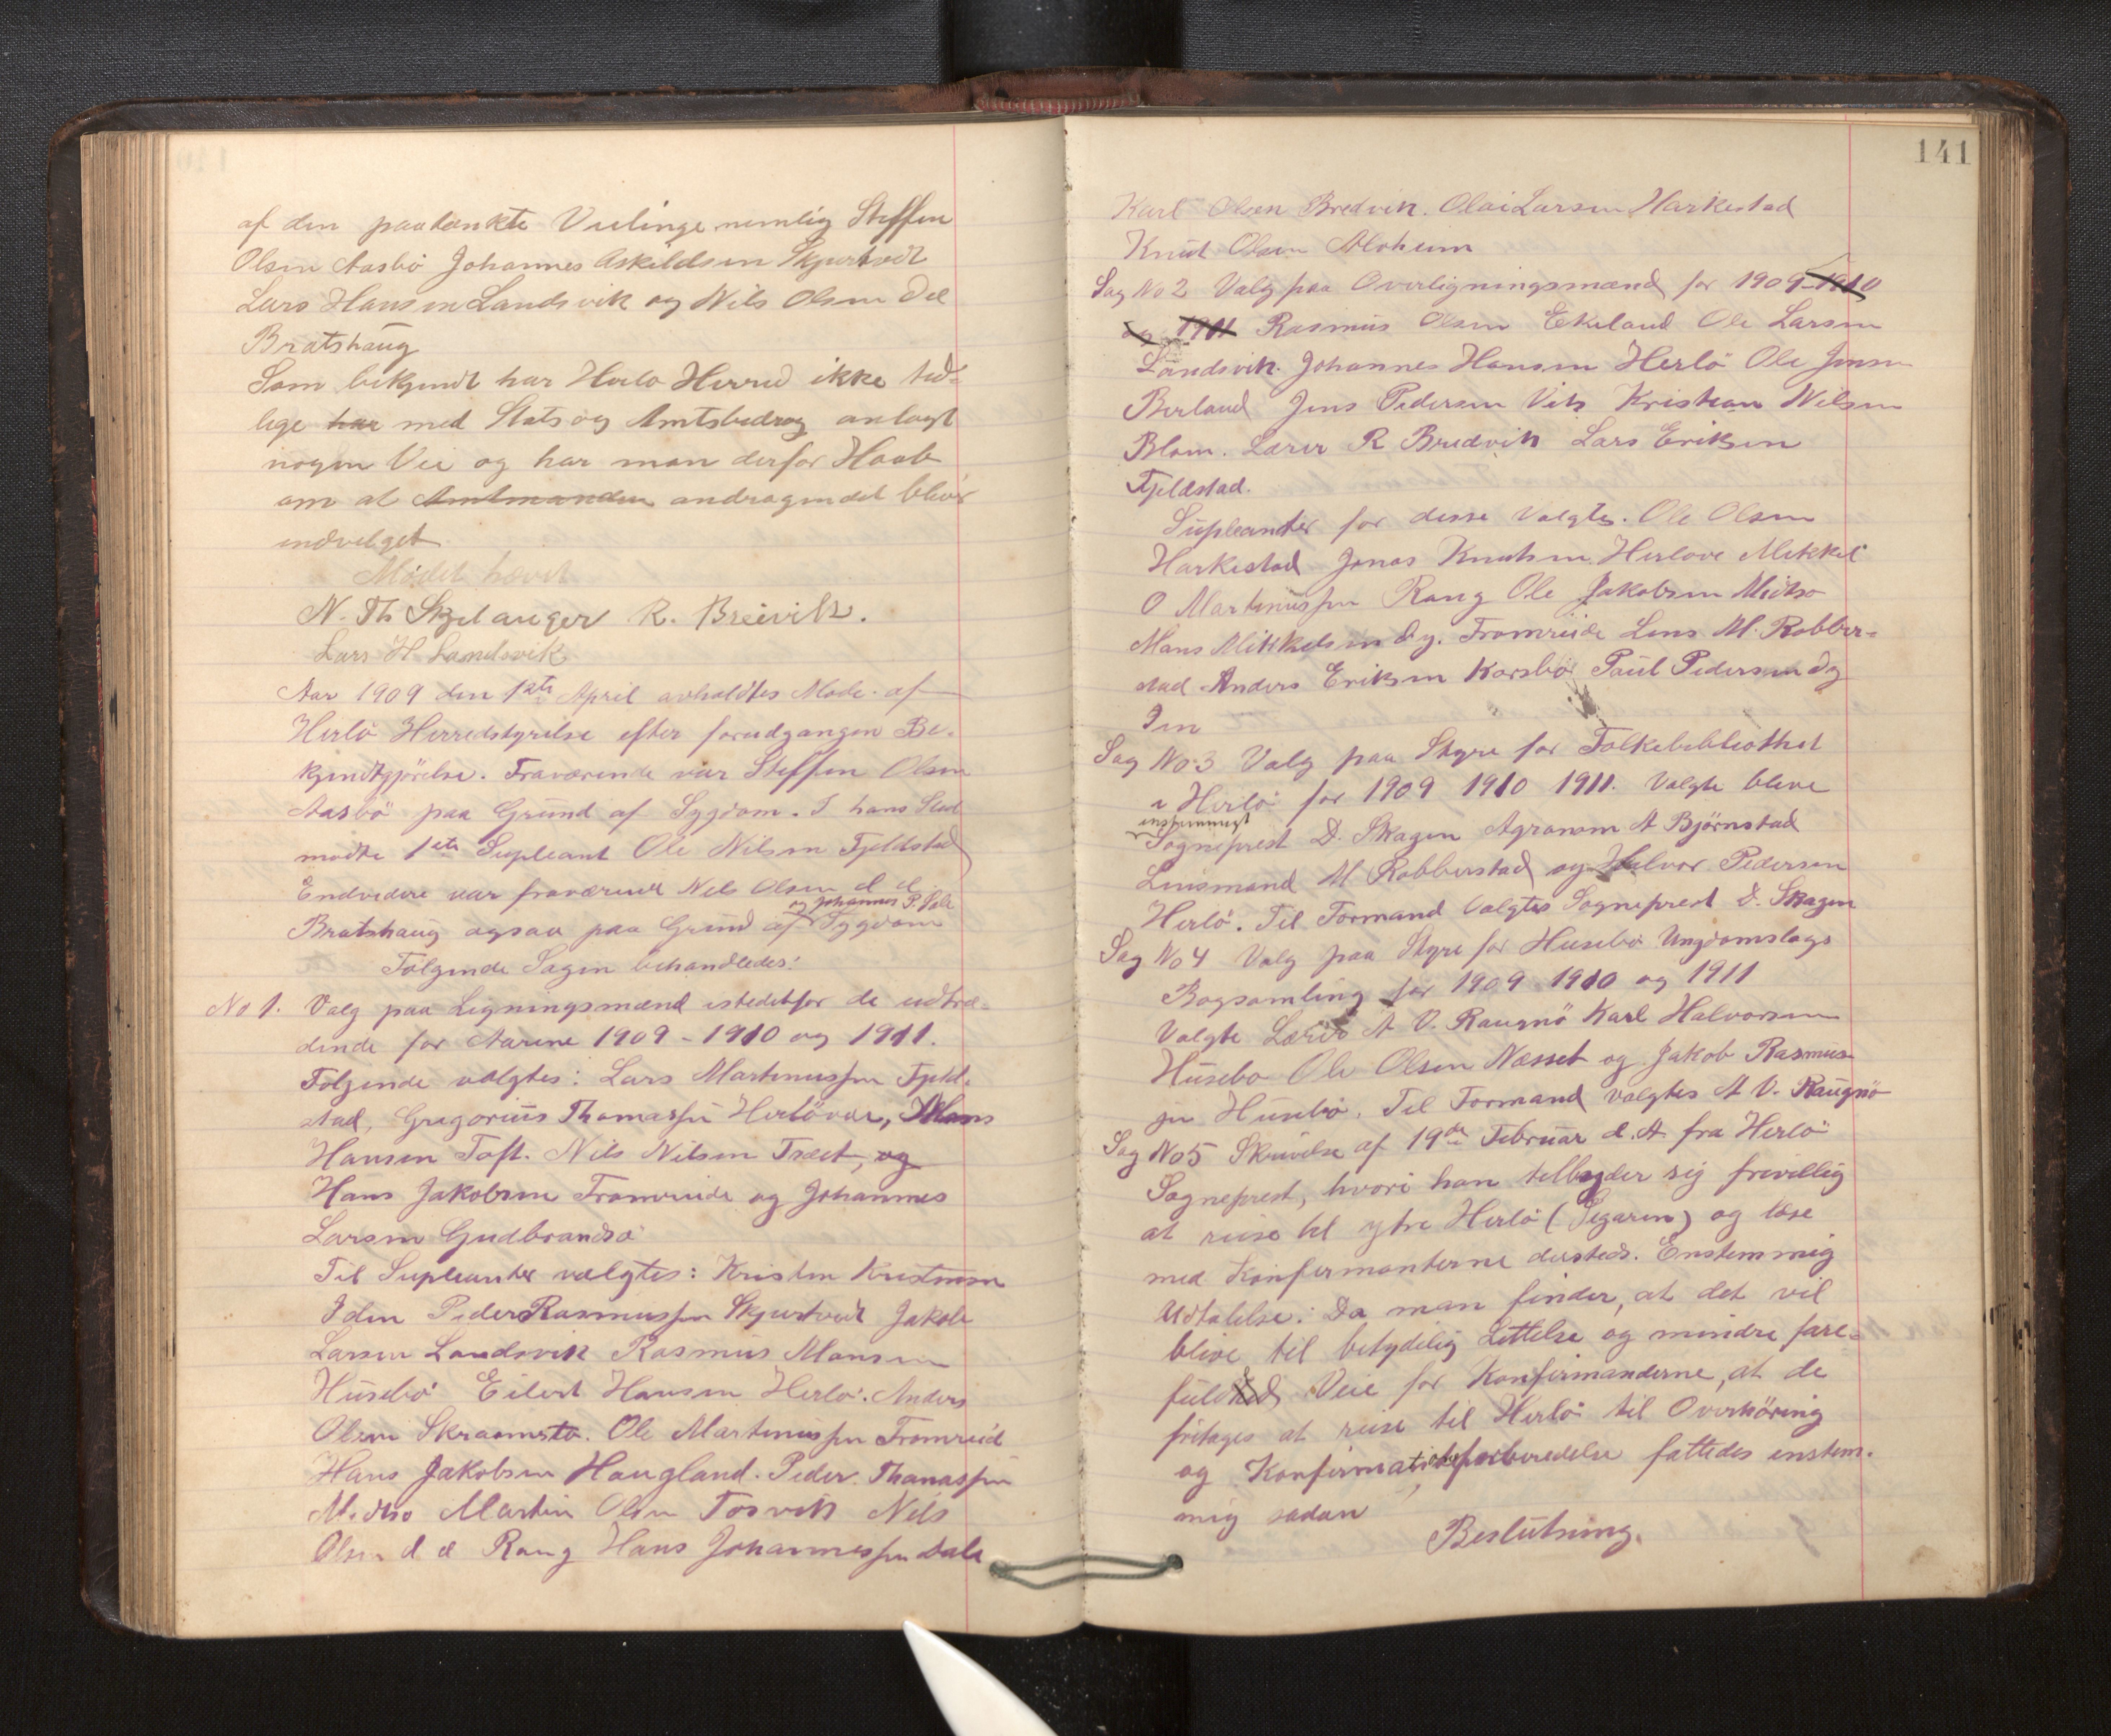 af den paatænkte Veilinge nemlig Steffen
Olsen Aasbö Johannes Askildsen Skjurtvedt
Lars Hansen Landsvik og Nils Olsen d e
Bratshaug
Som bekjendt har Herlø Herred ikke tid-
lige har med Stats og Amtsbedrag anlagt
nogen Vei og har man derfor Haab
om at Amtmanden andragendet blivr
indvelget
Mödet hævet
N. Th Skjelanger R. Breivik.
Lars H Landsvik
Aar 1909 den 1ste April avholdtes Möde af
Herlö Herredstyrelse efter forudgangen Be-
kjendtgjörelse. Fraværende var Steffen Olsen
Aasbö paa Grund af Sygdom. I hans Sted
mödte 1ste Supleant Ole Nilsen Fjeldstad
Endvidere var fraværend Nils Olsen d e
og Johannes P.
Bratshaug ogsaa paa Grund af Sygdom
Fölgende Sagen behandledes:
No 1. Valg paa Ligningsmænd istedetfor de udtræ-
dende for Aarene 1909 - 1910 og 1911.
Fölgende valgtes: Lars Martinussen Fjeld-
stad, Gregorius Thomassen Herlövær, Mons
Hansen Toft. Nils Nilsen Træet, og
Hans Jakobsen Fromreide og Johannes
Larsen Gudbrandsö
Til Supleanter valgtes: Kristen Kristensen
Iden Peder Rasmussen Skjurtveit Jakob
Larsen Landsvik Rasmus Monsen
Husebö Eilert Hansen Herlö. Anders
Olsen Skraamstø. Ole Martinussen Fromreid
Hans Jakobsen Haugland. Peder Thomassen
Midtsö Martin Olsen Tosvik Nils
Olsen d e Rong Hans Johannessen Dale
141
Karl Olsen Bredvik. Olai Larsen Harkestad
Knut Olsen Aloheim
Sag No 2 Valg paa Overligningsmænd for 1909-1910
og 1911 Rasmus Olsen Ekeland Ole Larsen
Landsvik. Johannes Hansen Herlö Ole Jensen
Berland Jens Pedersen Vik Kristian Nilsen
Blom. Lærer R Bredvik Lars Eriksen
Fjeldstad.
Supleanter for disse valgtes. Ole Olsen
Harkestad Jonas Knutsen Herløvær Mikkel
O Martinussen Rong Ole Jakobsen Midtsø
Mons Mikkelsen d.y. Fromreide Lens M. Robber-
stad Anders Eriksen Korsbö Paul Pedersen dy
Den
Sag No 3 Valg paa Styre for Folkebibliothet
i Herlö for 1909 1910 1911. Valgte bleve
enstemmigt
Sogneprest D. Skagen Agronom A Björnstad
Lensmand M Robberstad og Halvor Pedersen
Herlö. Til Formand valgtes Sogneprest D. Skagen
Sag No 4 Valg paa Styre for Husebö Ungdomslags
Bogsamling for 1909 1910 og 1911
Valgte Lærer A V. Raugnö Karl Halvorsen
Husebø Ole Olsen Næsset og Jakob Rasmus-
sen Husebö. Til Formand valgtes A V. Raugnö
Sag No 5 Skrivelse af 19de Februar d. A. fra Herlö
Sogneprest, hvori han tilbyder sig frivillig
at reise til ytre Herlö (Segaren) og læse
med Konfirmanterne dersteds. Enstemmig
Udtalelse: Da man finder, at det vil
blive til betydelig Lettelse og mindre fare-
fuld Veie for Konfirmanderne, at de
fritages at reise til Herlö til Overhöring
og Konfirmationsforberedelse fattedes enstem-
mig sadan
Beslutning.